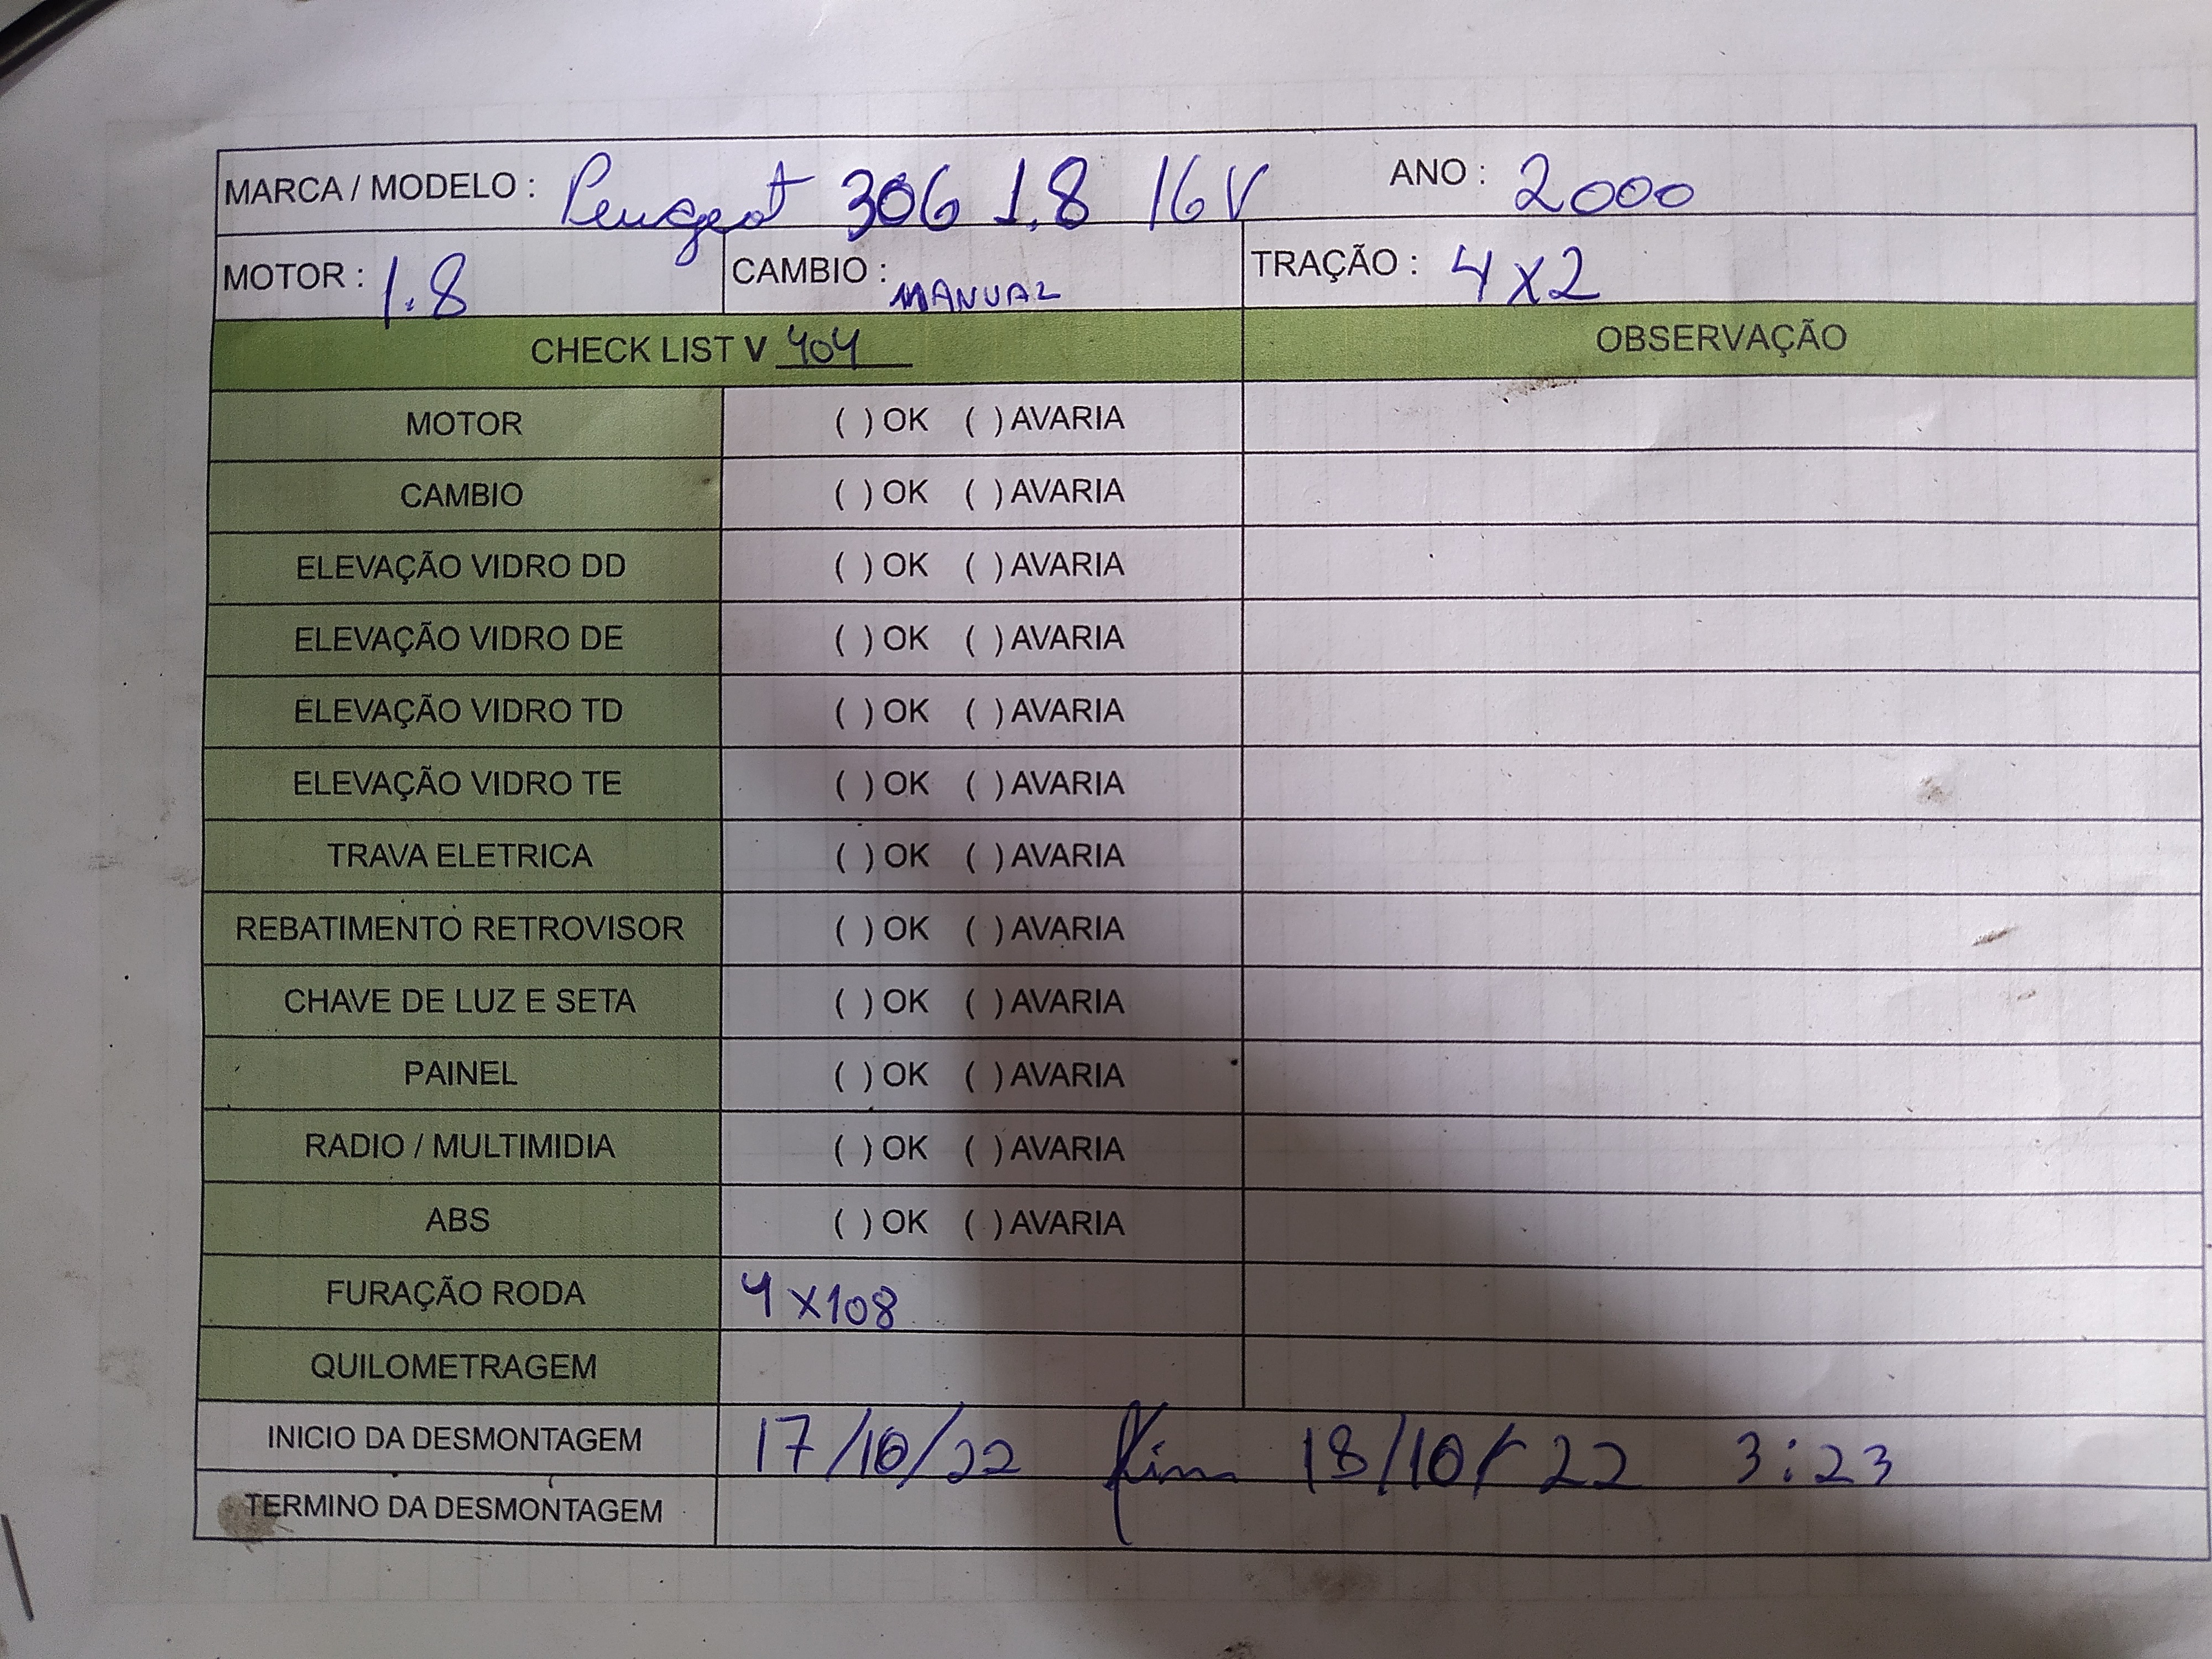 MARCA / MODELO : Peugeot 306 1.8 16V ANO : 2000
MOTOR : 1.8 CAMBIO : MANUAL TRAÇÃO : 4x2
CHECK LIST V 404 OBSERVAÇÃO
MOTOR ( ) OK ( ) AVARIA
CAMBIO ( ) OK ( ) AVARIA
ELEVAÇÃO VIDRO DD ( ) OK ( ) AVARIA
ELEVAÇÃO VIDRO DE ( ) OK ( ) AVARIA
ELEVAÇÃO VIDRO TD ( ) OK ( ) AVARIA
ELEVAÇÃO VIDRO TE ( ) OK ( ) AVARIA
TRAVA ELETRICA ( ) OK ( ) AVARIA
REBATIMENTO RETROVISOR ( ) OK ( ) AVARIA
CHAVE DE LUZ E SETA ( ) OK ( ) AVARIA
PAINEL ( ) OK ( ) AVARIA
RADIO / MULTIMIDIA ( ) OK ( ) AVARIA
ABS ( ) OK ( ) AVARIA
FURAÇÃO RODA 4x108
QUILOMETRAGEM
INICIO DA DESMONTAGEM 17/10/22 fim 18/10/22 3:23
TERMINO DA DESMONTAGEM